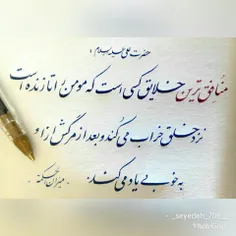 حضرت علی علیه السلام :
منافق ترین خلایق کسی است که مومن را تا زنده است
نزد خلق خراب می کند و بعد از مرگش از او
به خوبی یاد می کند.
میزان الحکمه
_seyedeh_708_